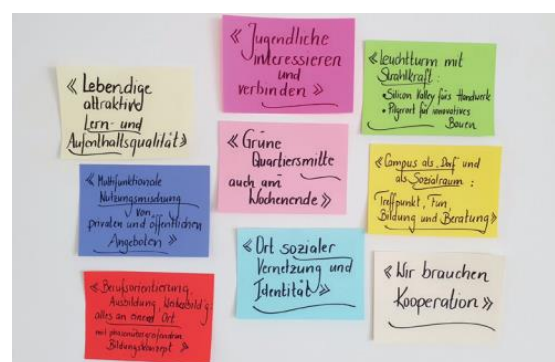 « Lebendige
attraktive
Lern- und
Aufenthaltsqualität »
« Multifunktionale
Nutzungsmischung
von
privaten und öffentlichen
Angeboten »
« Berufsorientierung,
Ausbildung,
alles an einem Ort
mit
Bildungskonzept »
« Jugendliche
interessieren
und
verbinden »
« Grüne
Quartiersmitte
auch am
Wochenende »
« Ort sozialer
Vernetzung und
Identität »
« Leuchtturm mit
Strahlkraft:
• Silicon Valley fürs Handwerk
• Pilgerort für innovatives
Bauen
« Campus als Dorf und
als Sozialraum:
Treffpunkt, Fun,
Bildung und Beratung »
« Wir brauchen
Kooperation »